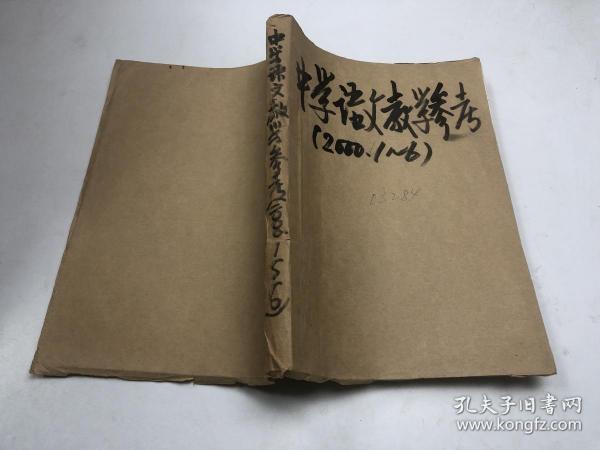 中学语文教学参考
(2000.1~6)
03284
中学语文教学参考
孔夫子旧书网
www.kongfz.com